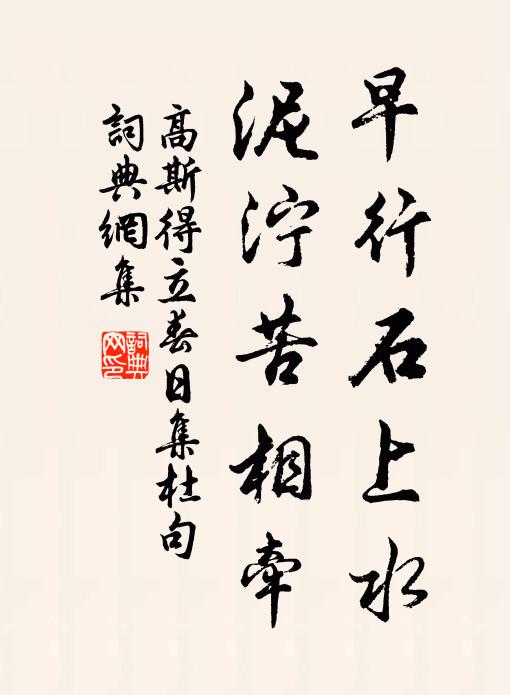 早行石上水
泥泞苦相牽
高斯得立春日集杜句
詞典網集
詞典網印